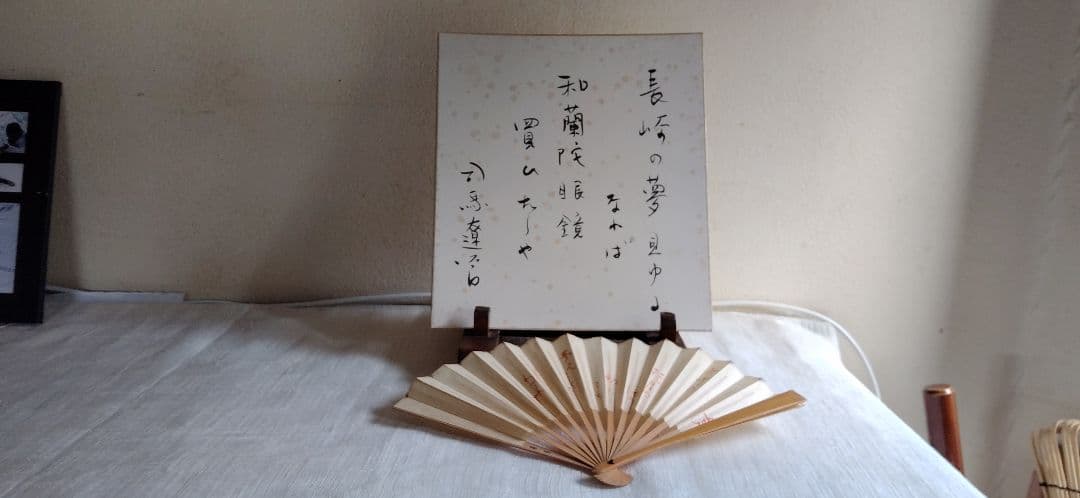 長崎の夢見ゆる
なれば
和蘭陀眼鏡
買ひたしや
司馬遼太郎